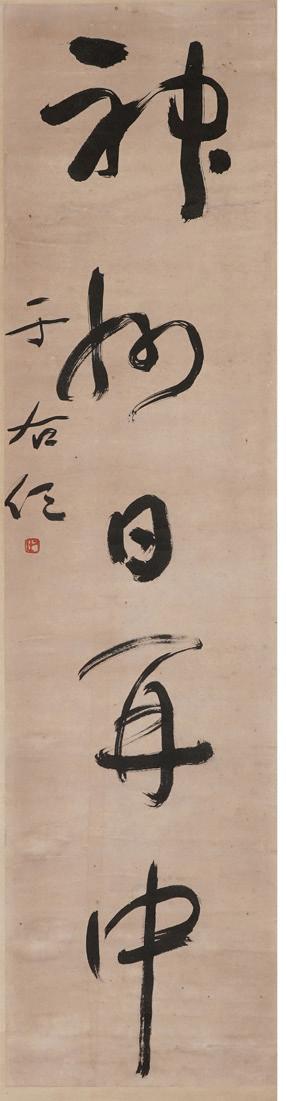 神州日再中
于右任